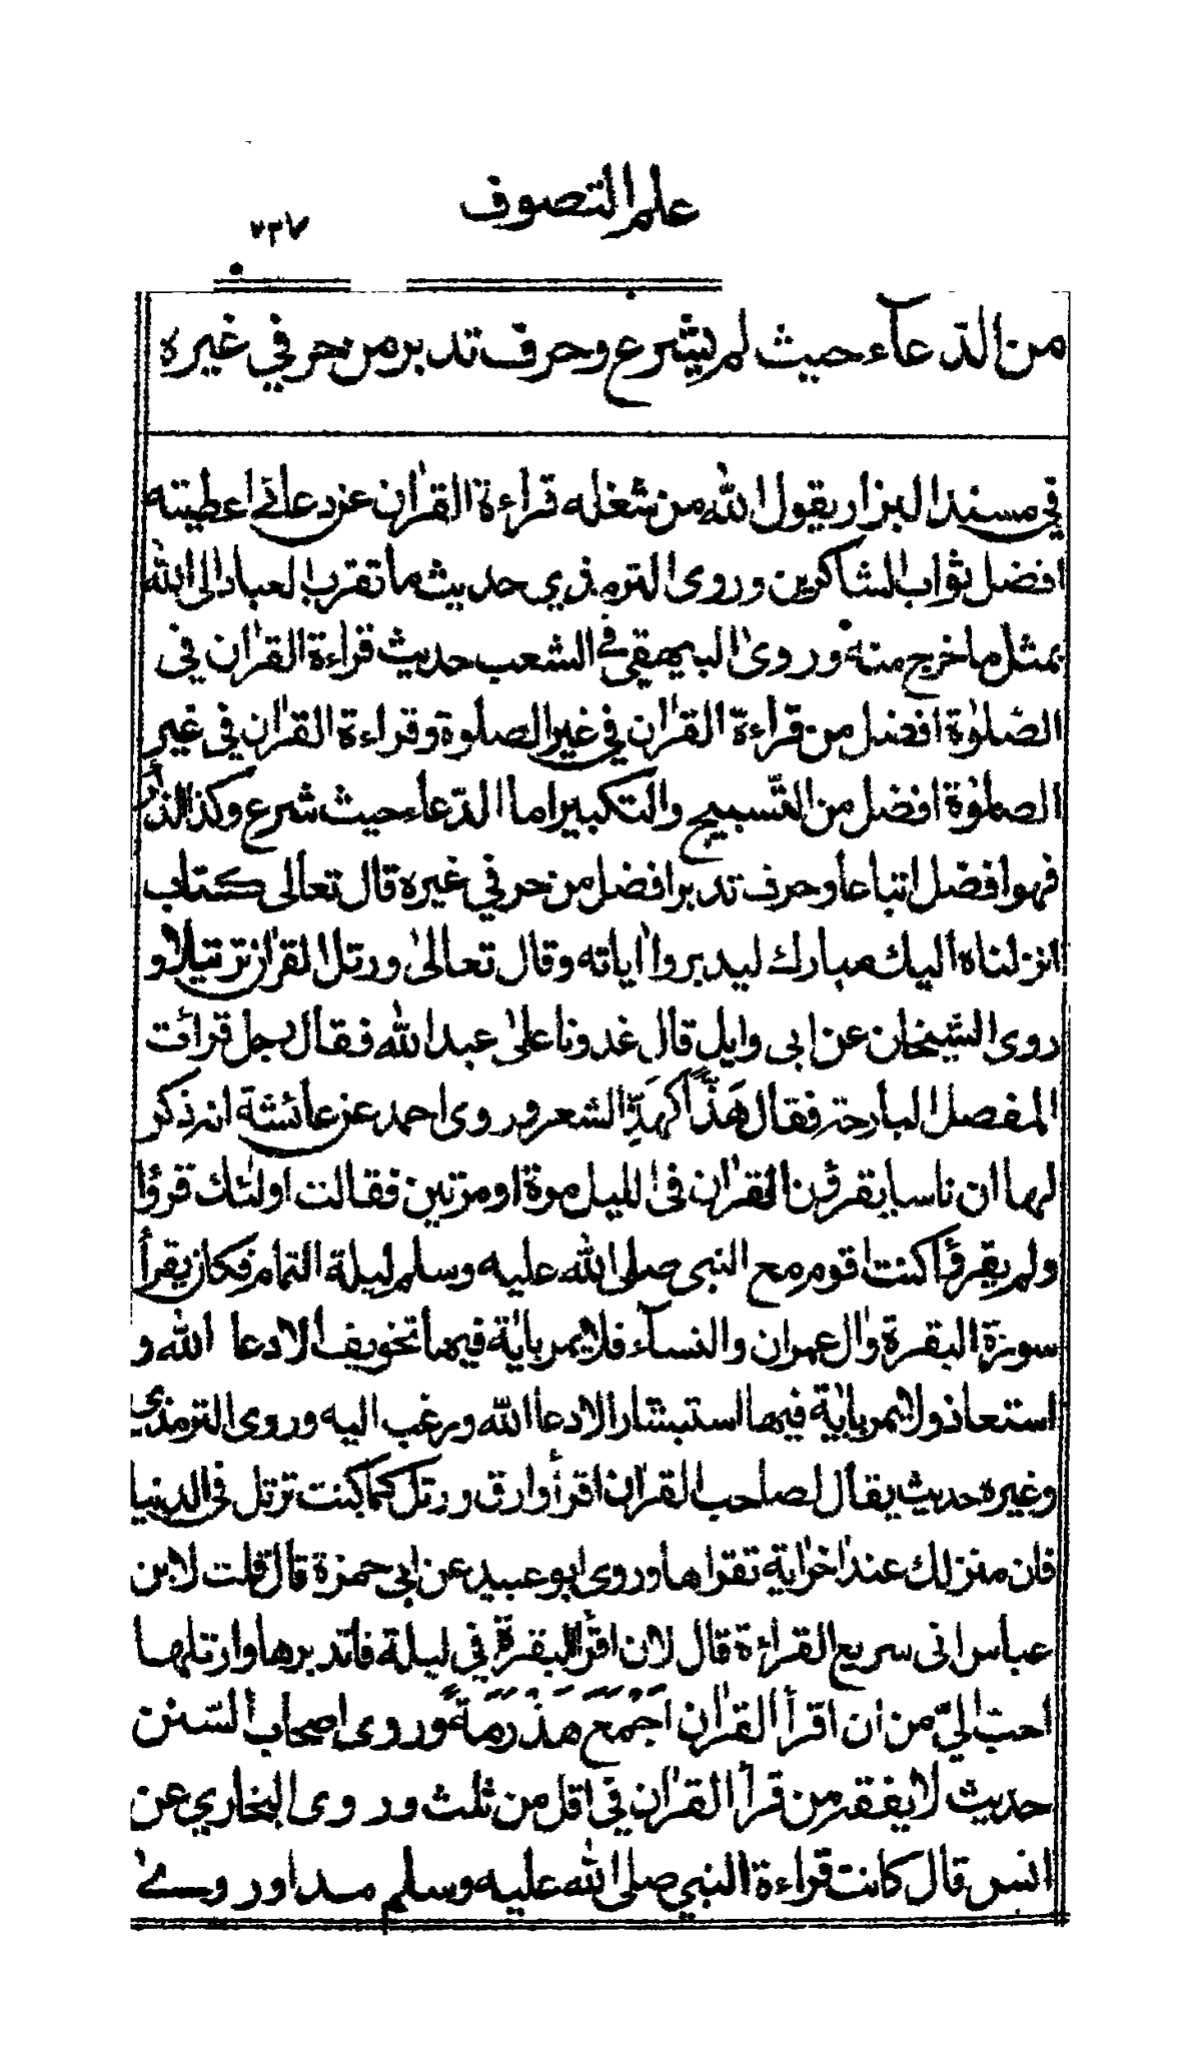 علم التصوف
٢٣٧
من الدّعآء حيث لم يشرع وحرف تدبر من حرفي غيره
في مسند البزار يقول الله من شغله قراءة القرٰان عن دعائے اعطيته
افضل ثواب الشاكرين وروى الترمذي حديث ما تقرب العباد الى الله
بمثل ما خرج منه وروىٰ البيهقي في الشعب حديث قراءة القرٰان في
الصّلوٰة افضل من قراءة القرٰان في غير الصلوة وقراءة القرٰان في غير
الصلوٰة افضل من التّسبيح والتكبير اما الدّعاء حيث شرع وكذا الذكر
فهو افضل اتباعا وحرف تدبر افضل من حرفي غيره قال تعالى كتاب
انزلناه اليك مبارك ليدبروا اٰياته وقال تعالىٰ ورتل القرٰان ترتيلا و
روى الشيخان عن ابى وايل قال غدونا علىٰ عبد الله فقال رجل قرائت
المفصل البارحة فقال هَذًّا كَهَذِّ الشعر وروى احمد عن عائشة انه ذكر
لها ان ناسا يقرؤن القرٰان فى الليل مرة او مرتين فقالت اولئك قرؤا
ولم يقرؤا كنت اقوم مع النبى صلى الله عليه وسلم ليلة التمام فكان يقرأ
سورة البقرة واٰل عمران والنسآء فلا يمر باٰية فيها تخويف الا دعا الله و
استعاذ ولا يمر باٰية فيها استبشار الا دعا الله ورغب اليه وروى الترمذي
وغيره حديث يقال لصاحب القرٰان اقرأ وارق ورتل كما كنت ترتل فى الدنيا
فان منزلك عند اٰخر اٰية تقراها وروى ابو عبيد عن ابى حمزة قال قلت لابن
عباس انى سريع القراءة قال لان اقرأ البقرة في ليلة فاتدبرها وارتلها
احب اليّ من ان اقرأ القرٰان اَجْمَع هَذْرَمَةً وروى اصحاب السّنن
حديث لا يفقه من قرأ القرٰان في اقل من ثلث وروى البخاري عن
انس قال كانت قراءة النبي صلى الله عليه وسلم مدا وروے